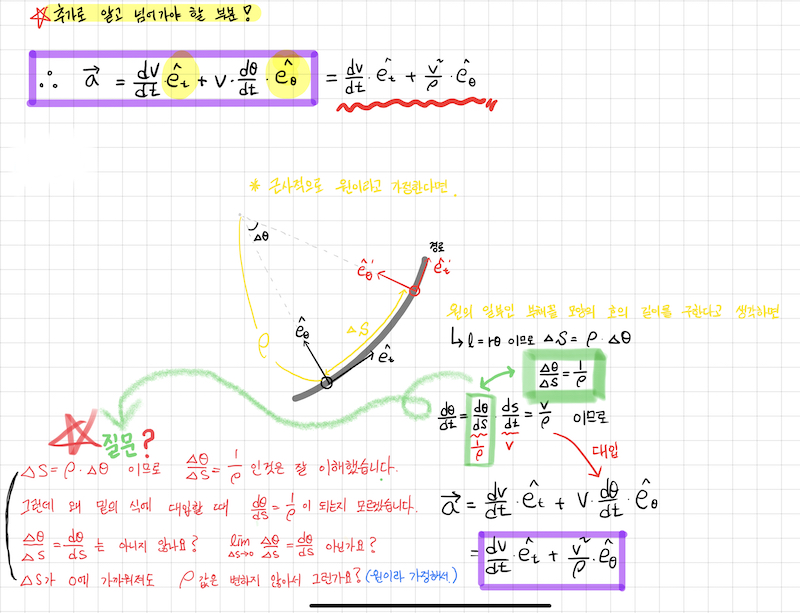 ☆ 추가로 알고 넘어가야 할 부분!
∴ a⃗ = dv/dt · ê_t + v · dθ/dt · ê_θ = dv/dt · ê_t + v²/ρ · ê_θ
* 근사적으로 원이라고 가정한다면.
Δθ
경로
ê_θ'
ê_t'
ê_θ
ΔS
ρ
ê_t
원의 일부인 부채꼴 모양의 호의 길이를 구한다고 생각하면
↳ l = rθ 이므로 ΔS = ρ · Δθ
Δθ/ΔS = 1/ρ
dθ/dt = dθ/ds · ds/dt = v/ρ 이므로
1/ρ v
대입
a⃗ = dv/dt · ê_t + v · dθ/dt · ê_θ
= dv/dt · ê_t + v²/ρ · ê_θ
☆ 질문?
ΔS = ρ · Δθ 이므로 Δθ/ΔS = 1/ρ 인것은 잘 이해했습니다.
그런데 왜 밑의 식에 대입할 때 dθ/ds = 1/ρ 이 되는지 모르겠습니다.
Δθ/ΔS = dθ/ds 는 아니지 않나요? lim ΔS→0 Δθ/ΔS = dθ/ds 아닌가요?
ΔS가 0에 가까워져도 ρ 값은 변하지 않아서 그런가요? (원이라 가정해서.)